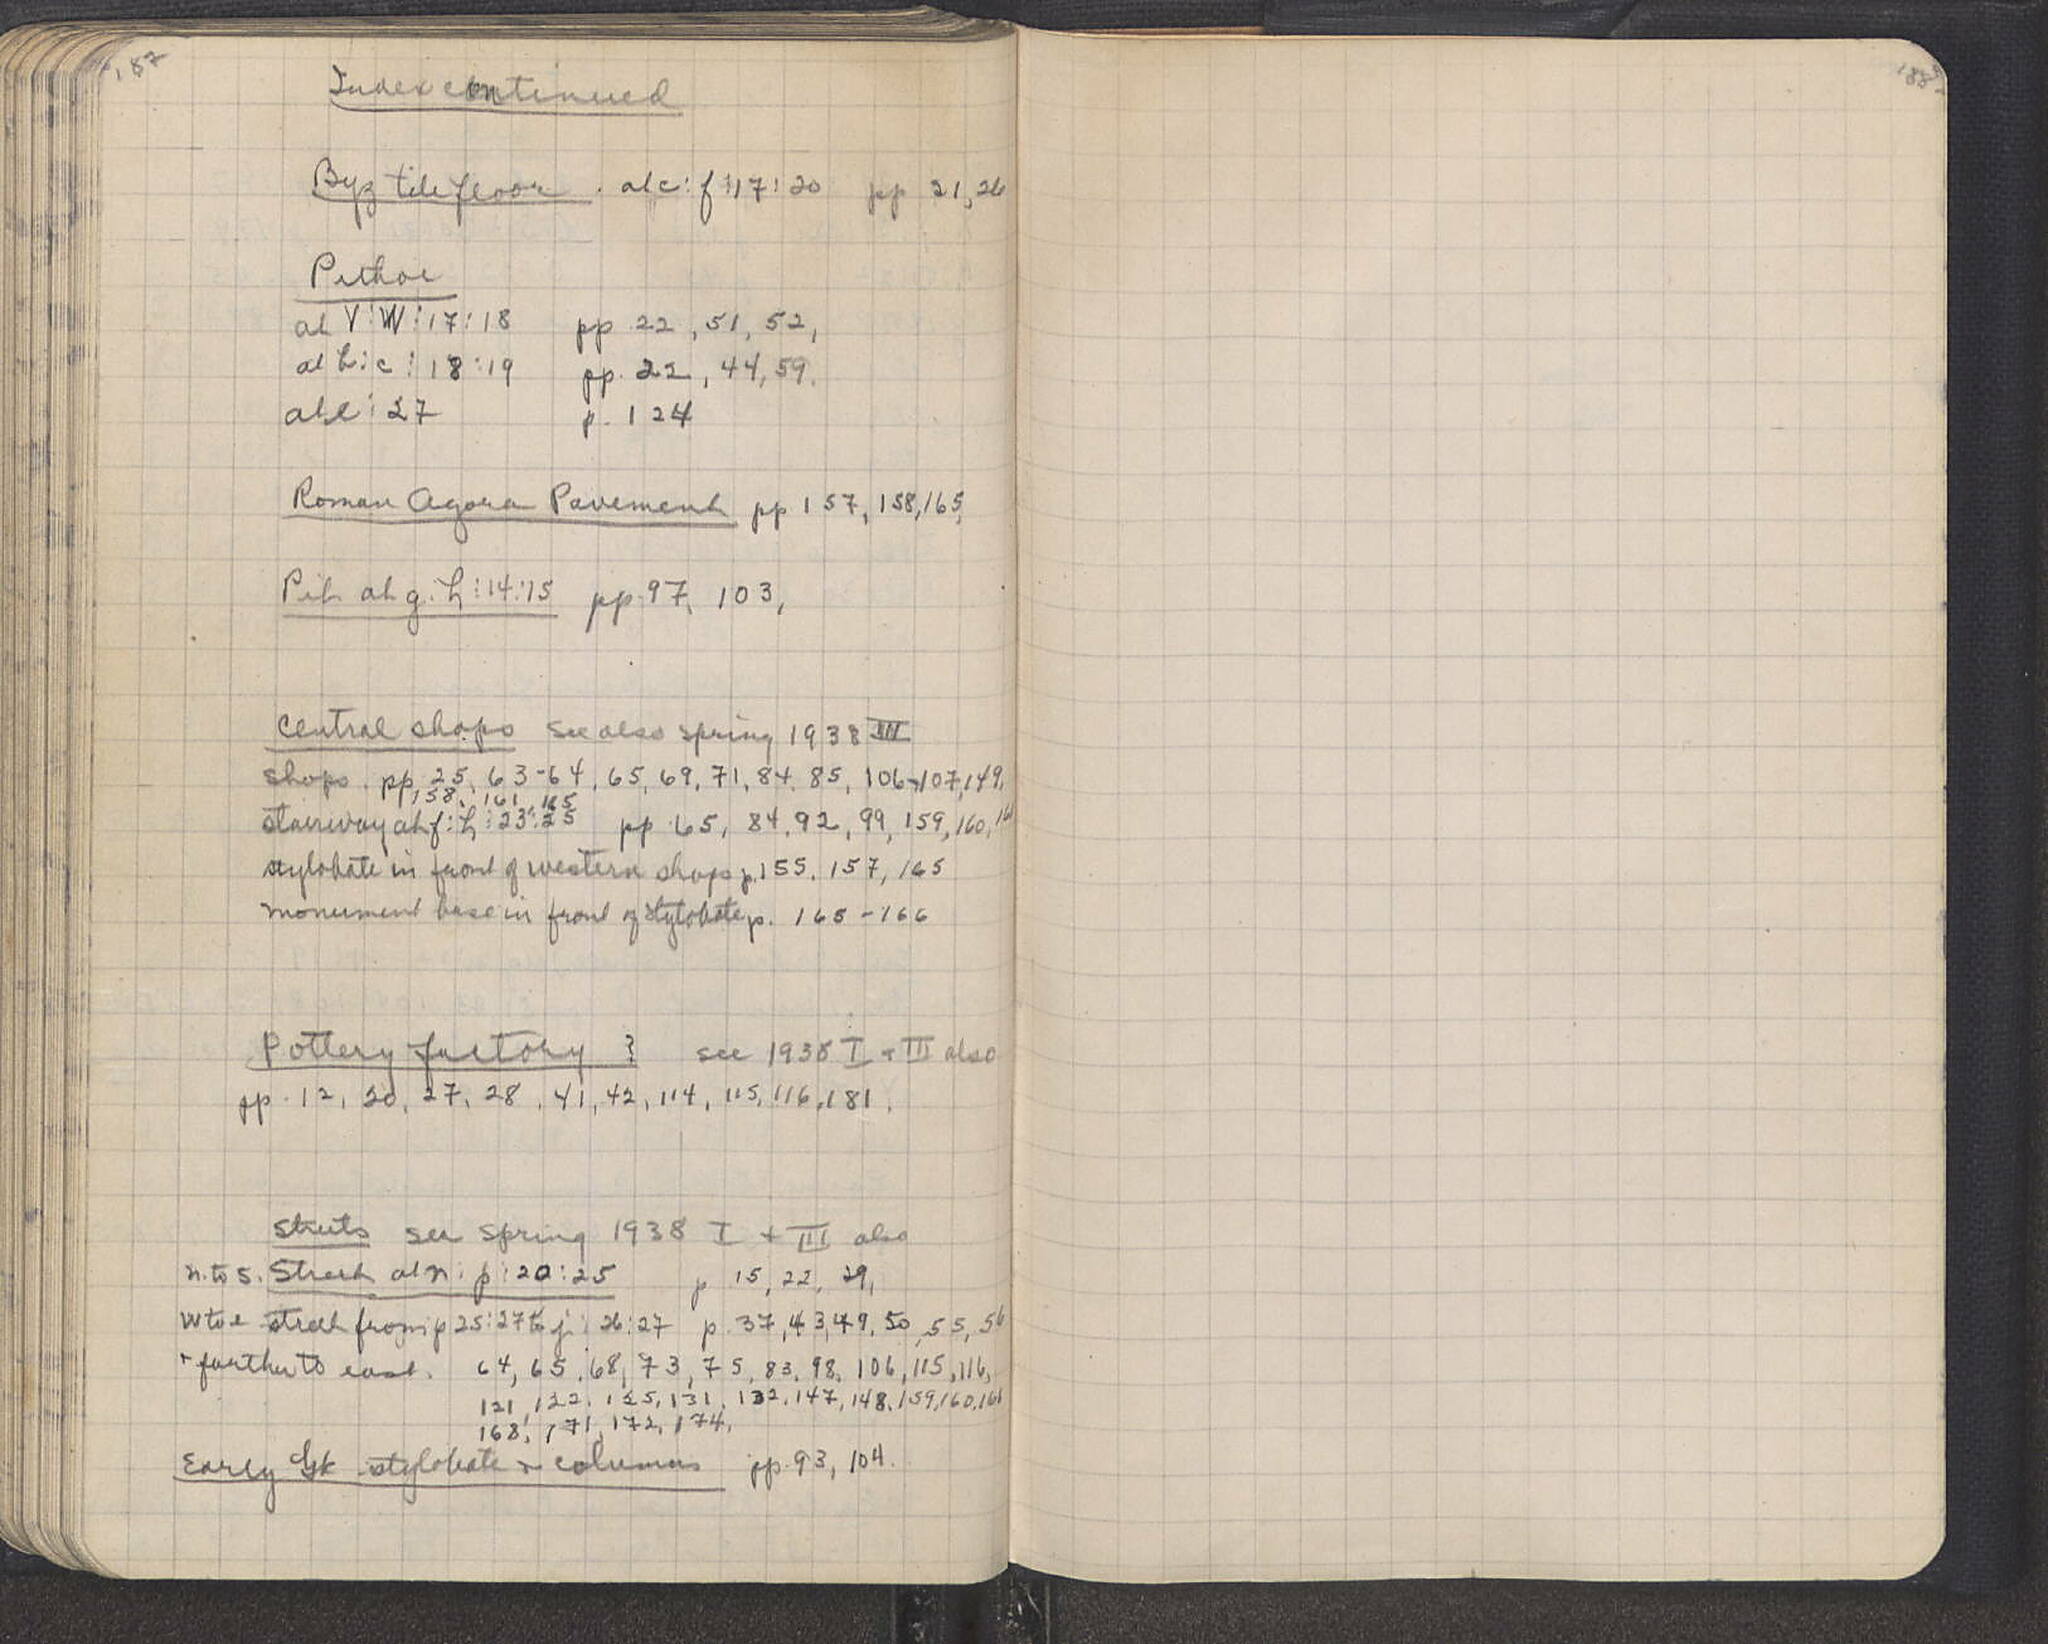 187
Index continued
Byz tile floor . at c:f:17:20 pp 21,26
Pithoi
at V:W:17:18 pp 22, 51, 52,
at h:c:18:19 pp. 22, 44, 59.
at l:27 p. 124
Roman Agora Pavement pp 157, 158, 165,
Pit at g:h:14:15 pp. 97, 103,
Central shops see also spring 1938 III
shops. pp 25, 63-64, 65, 69, 71, 84, 85, 106-107, 149,
158, 161, 165
stairway at f:h:23:25 pp 65, 84, 92, 99, 159, 160, 161
stylobate in front of western shops p. 155, 157, 165
monument base in front of stylobate p. 165-166
Pottery factory ? see 1938 I + III also
pp. 12, 20, 27, 28, 41, 42, 114, 115, 116, 181.
Streets see spring 1938 I + III also
n. to s. Street at n:p:20:25 p 15, 22, 29,
w to e street from p 25:27 to j: 26:27 p. 37, 43, 49, 50, 55, 56
+ farther to east. 64, 65, 68, 73, 75, 83, 98, 106, 115, 116,
121, 122, 125, 131, 132, 147, 148, 159, 160, 161
168, 171, 172, 174,
Early Gk stylobate + columns pp. 93, 104.
188